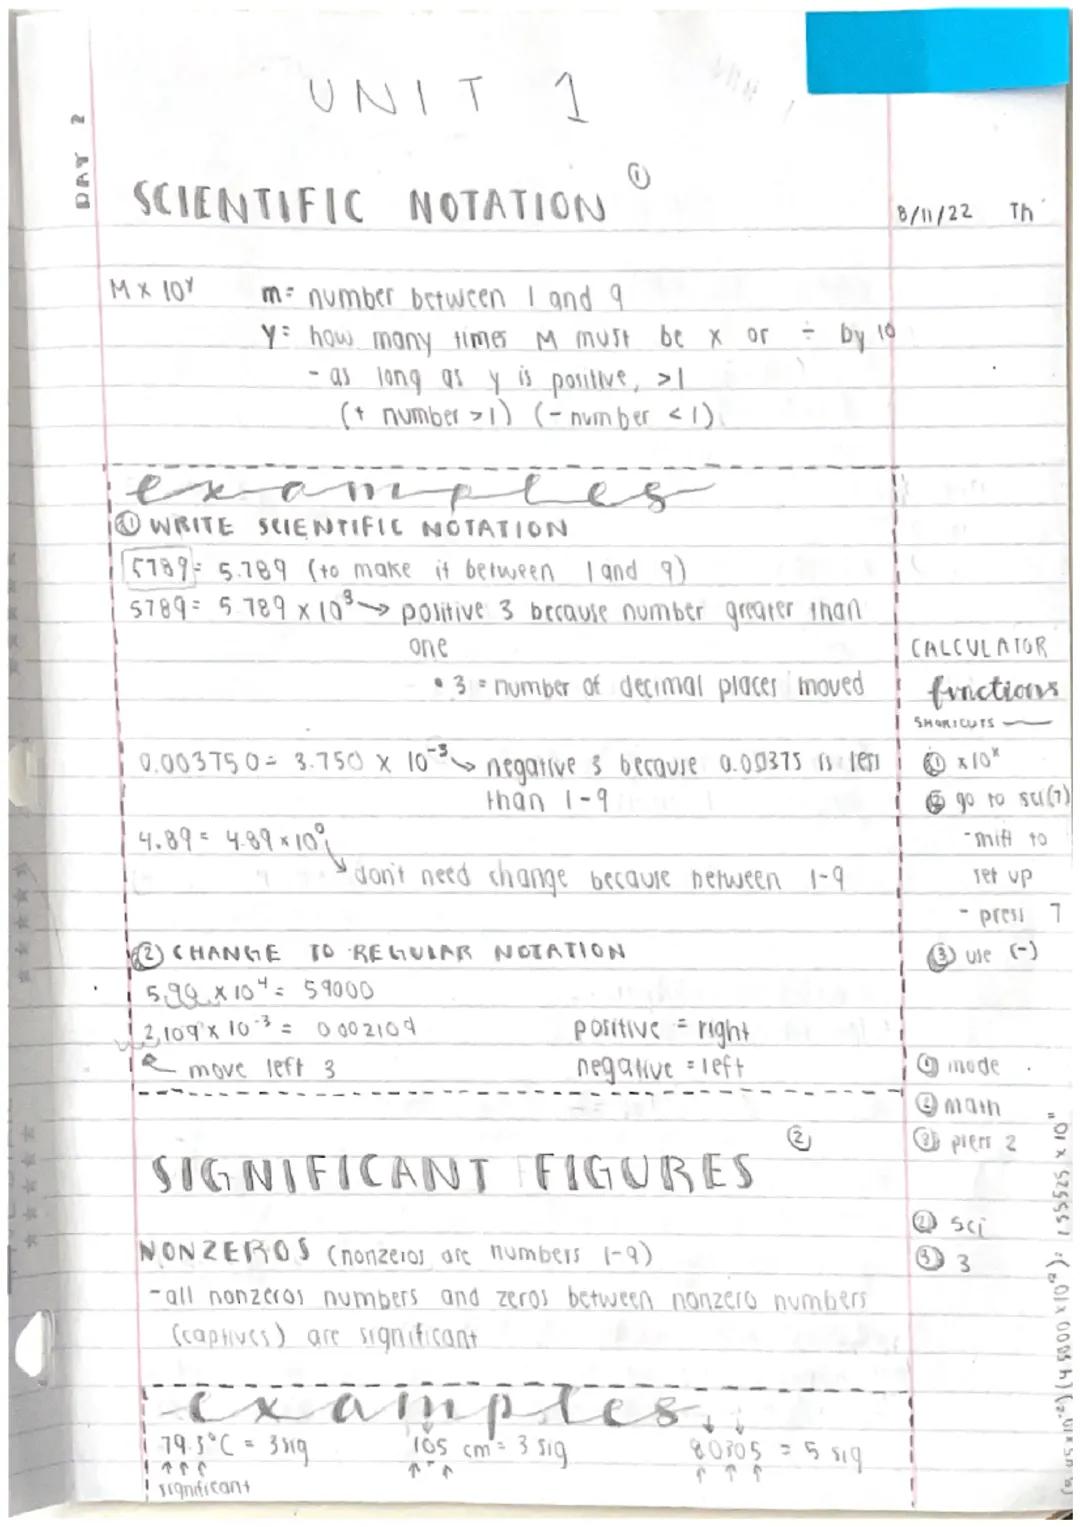 UNIT 1
DAY 2
SCIENTIFIC NOTATION ①
8/11/22 Th
M x 10ʸ m= number between 1 and 9
y= how many times M must be x or ÷ by 10
- as long as y is positive, >1
(+ number >1) (- number <1)
examples
① WRITE SCIENTIFIC NOTATION
5789= 5.789 (to make it between 1 and 9)
5789= 5.789 x 10³ → positive 3 because number greater than
one
• 3 = number of decimal places moved
0.003750= 3.750 x 10⁻³ → negative 3 because 0.00375 is less
than 1-9
4.89= 4.89 x 10⁰
→ don't need change because between 1-9
② CHANGE TO REGULAR NOTATION
5.90 x 10⁴= 59000
2.109 x 10⁻³ = 0.002109 positive = right
move left 3 negative = left
CALCULATOR
functions
SHORTCUTS
① x10ˣ
② go to sci(7)
- shift to
set up
- press 7
③ use (-)
① mode
② math
③ press 2
② sci
③ 3
SIGNIFICANT FIGURES ②
NONZEROS (nonzeros are numbers 1-9)
- all nonzeros numbers and zeros between nonzero numbers
(captives) are significant
examples
79.3°C = 3 sig 105 cm = 3 sig 80305 = 5 sig
↑↑↑ ↑ ↑ ↑ ↑ ↑
significant